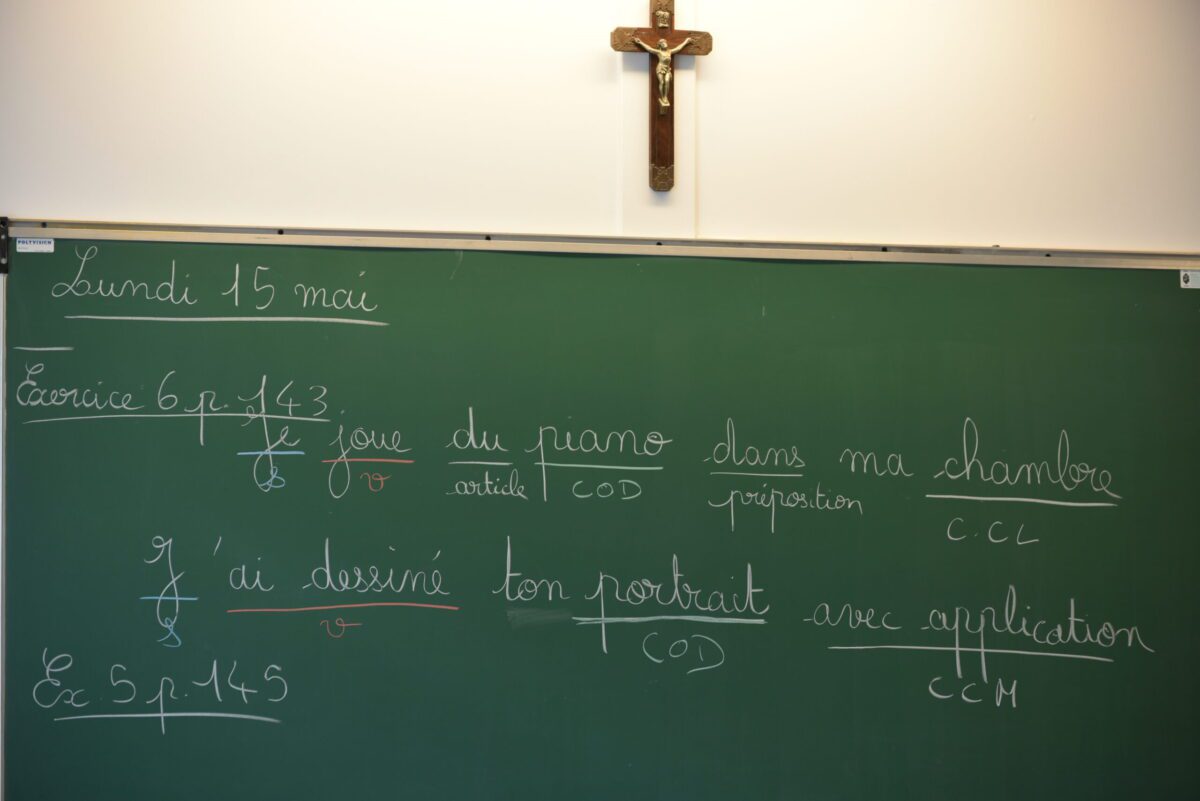 POLYVISION
Lundi 15 mai
Exercice 6 p. 143
Je joue du piano dans ma chambre
s v article COD préposition C.CL
J'ai dessiné ton portrait avec application
s v COD CCM
Ex. 5 p. 145